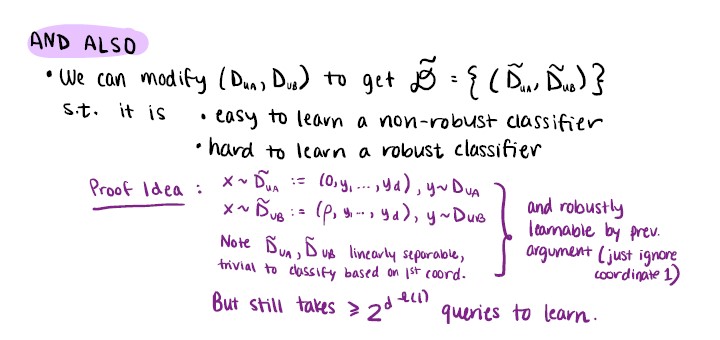 AND ALSO
• We can modify (D_{UA}, D_{UB}) to get 𝒟̃ = { (D̃_{UA}, D̃_{UB}) }
s.t. it is • easy to learn a non-robust classifier
• hard to learn a robust classifier
Proof Idea : x ~ D̃_{UA} := (0, y_1 ..., y_d), y ~ D_{UA}
x ~ D̃_{UB} := (ρ, y_1 ..., y_d), y ~ D_{UB}
Note D̃_{UA}, D̃_{UB} linearly separable,
trivial to classify based on 1st coord.
and robustly
learnable by prev.
argument (just ignore
coordinate 1)
But still takes ≥ 2^{d^{Ω(1)}} queries to learn.